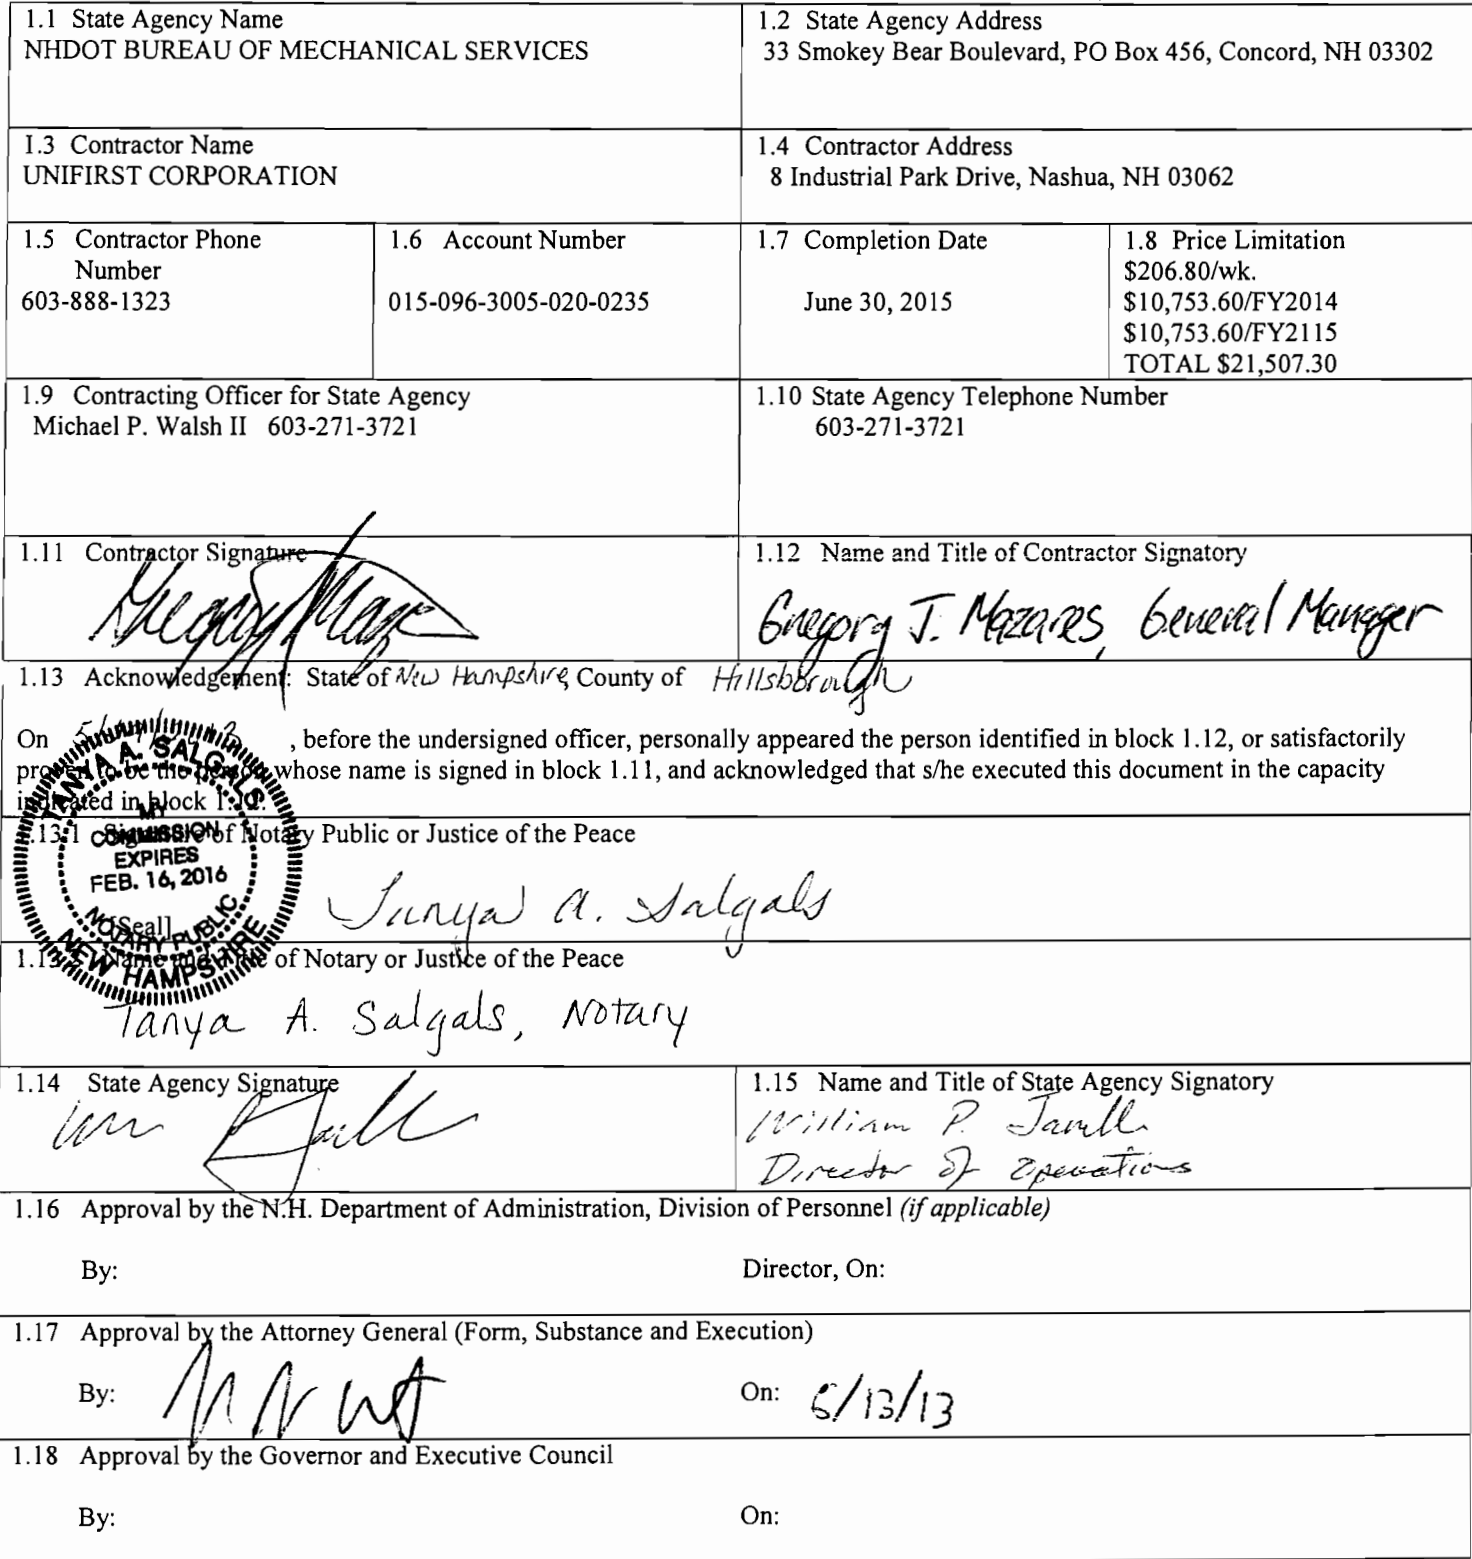 1.1 State Agency Name
NHDOT BUREAU OF MECHANICAL SERVICES
1.2 State Agency Address
33 Smokey Bear Boulevard, PO Box 456, Concord, NH 03302
1.3 Contractor Name
UNIFIRST CORPORATION
1.4 Contractor Address
8 Industrial Park Drive, Nashua, NH 03062
1.5 Contractor Phone
Number
603-888-1323
1.6 Account Number
015-096-3005-020-0235
1.7 Completion Date
June 30, 2015
1.8 Price Limitation
$206.80/wk.
$10,753.60/FY2014
$10,753.60/FY2115
TOTAL $21,507.30
1.9 Contracting Officer for State Agency
Michael P. Walsh II 603-271-3721
1.10 State Agency Telephone Number
603-271-3721
1.11 Contractor Signature
1.12 Name and Title of Contractor Signatory
Gregory J. Mazares, General Manager
1.13 Acknowledgement: State of New Hampshire, County of Hillsborough
On , before the undersigned officer, personally appeared the person identified in block 1.12, or satisfactorily
proven to be the person whose name is signed in block 1.11, and acknowledged that s/he executed this document in the capacity
indicated in block 1.12.
1.13.1 Signature of Notary Public or Justice of the Peace
TANYA A. SALGALS
MY
COMMISSION
EXPIRES
FEB. 16, 2016
NOTARY PUBLIC
NEW HAMPSHIRE
[Seal]
Tanya A. Salgals
1.13.2 Name and Title of Notary or Justice of the Peace
Tanya A. Salgals, Notary
1.14 State Agency Signature
1.15 Name and Title of State Agency Signatory
William P. Janelle
Director of Operations
1.16 Approval by the N.H. Department of Administration, Division of Personnel (if applicable)
By: Director, On:
1.17 Approval by the Attorney General (Form, Substance and Execution)
By: On: 6/13/13
1.18 Approval by the Governor and Executive Council
By: On: